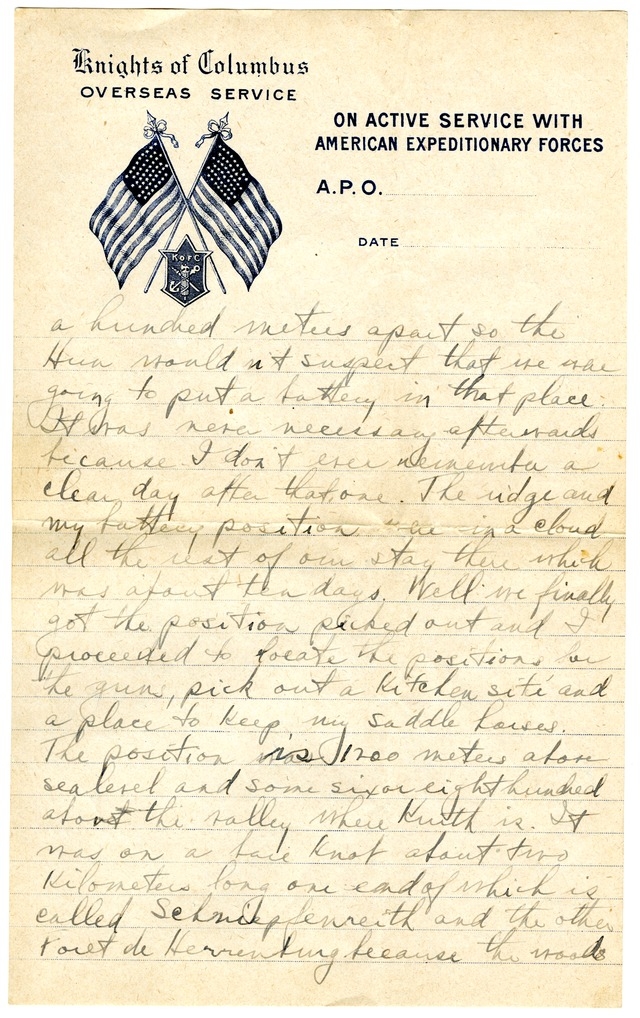 Knights of Columbus
OVERSEAS SERVICE
ON ACTIVE SERVICE WITH
AMERICAN EXPEDITIONARY FORCES
A.P.O.
DATE
K of C
a hundred meters apart so the
Hun would nt suspect that we were
going to put a battery in that place.
It was never necessary afterwards
because I don't ever remember a
clear day after that one. The ridge and
my battery position were in a cloud
all the rest of our stay there which
was about ten days. Well we finally
got the position picked out and I
proceeded to locate the positions for
the guns, pick out a kitchen site and
a place to keep my saddle horses.
The position is 1200 meters above
sea level and some six or eight hundred
above the valley where Kruth is. It
was on a bare knot about two
kilometers long one end of which is
called Schniepfenreith and the other
Foret de Herrenburg because the woods